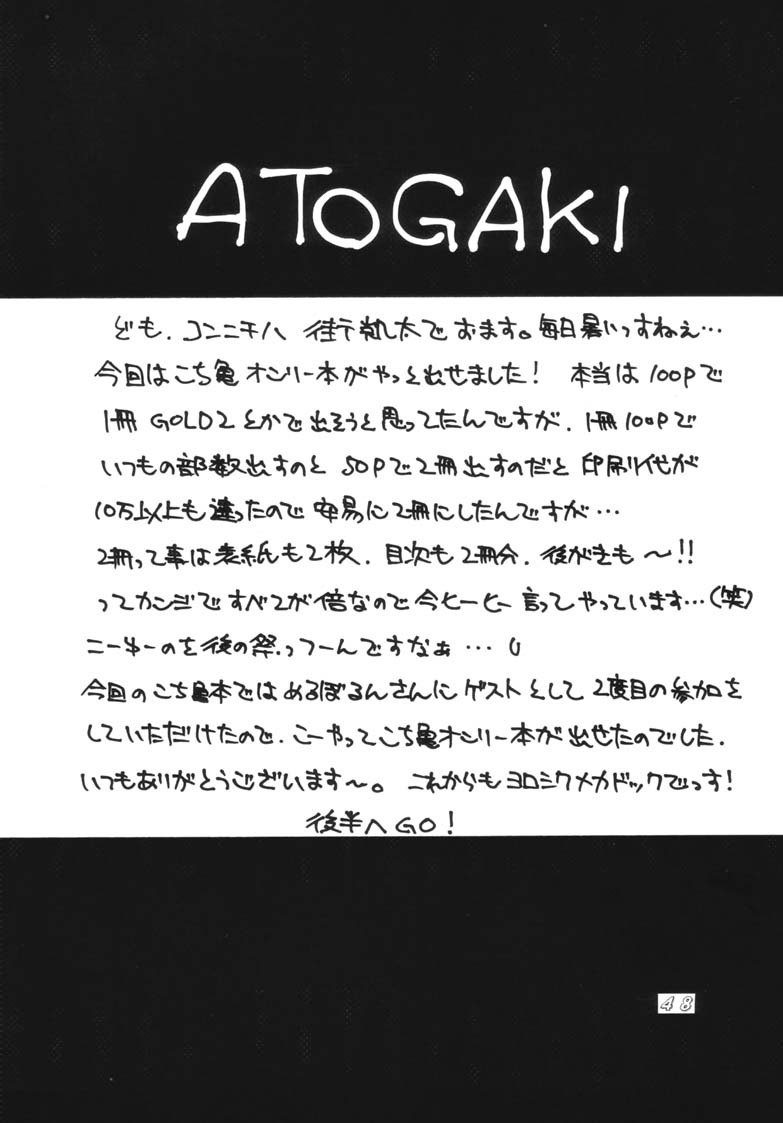 ATOGAKI
ども、コンニチハ 街凱太でおます。毎日暑いっすねぇ…
今回はこち亀オンリー本がやっと出せました! 本当は100Pで
1冊 GOLD2 とかで出そうと思ってたんですが、1冊100Pで
いつもの部数出すのと 50Pで2冊出すのだと 印刷代が
10万以上も違ったので 安易に2冊にしたんですが…
2冊って事は表紙も2枚、目次も2冊分、後がきも〜!!
ってカンジですべてが倍なので今ヒーヒー言ってやっています…(笑)
こーゆーのを後の祭っつーんですなぁ…
今回のこち亀本ではめるぼるんさんにゲストとして2度目の参加を
していただけたので、こーやってこち亀オンリー本が出せたのでした。
いつもありがとうございます〜。 これからもヨロシクメカドックでっす!
後半へGO!
48